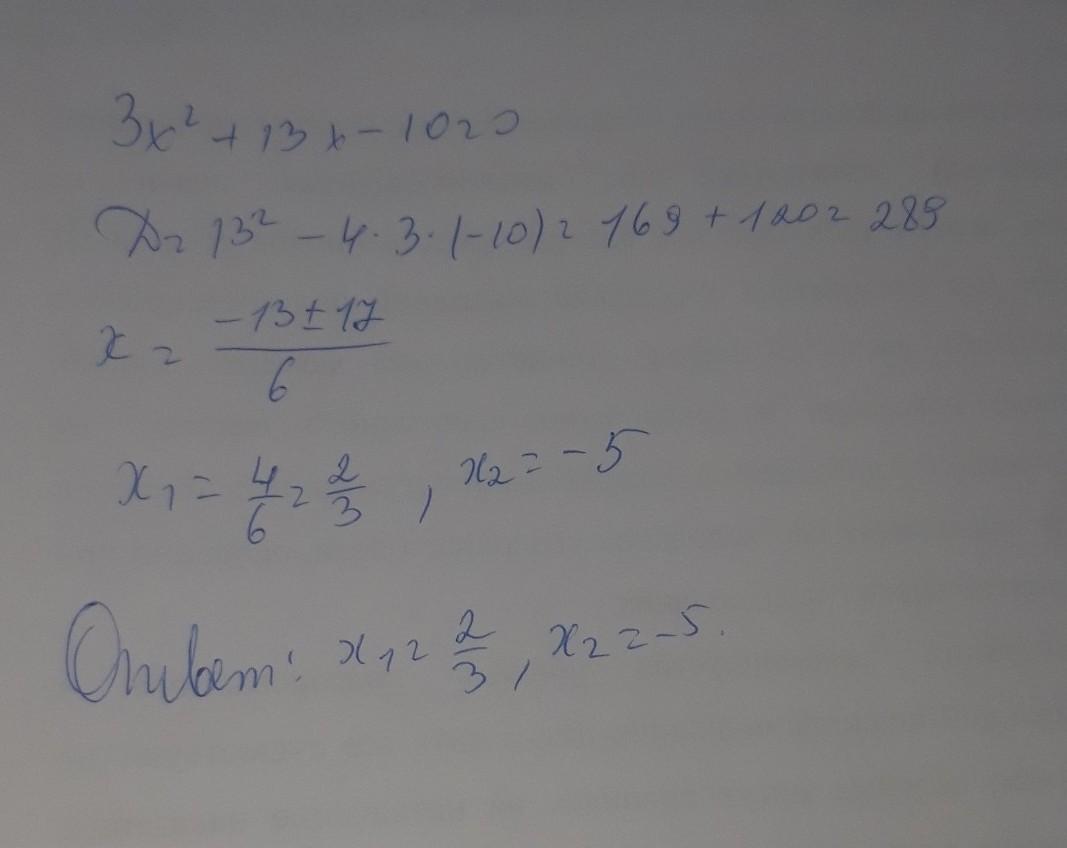 3x² + 13x - 10 = 0
D = 13² - 4 · 3 · (-10) = 169 + 120 = 289
x = (-13 ± 17) / 6
x₁ = 4/6 = 2/3 , x₂ = -5
Ответ: x₁ = 2/3 , x₂ = -5.